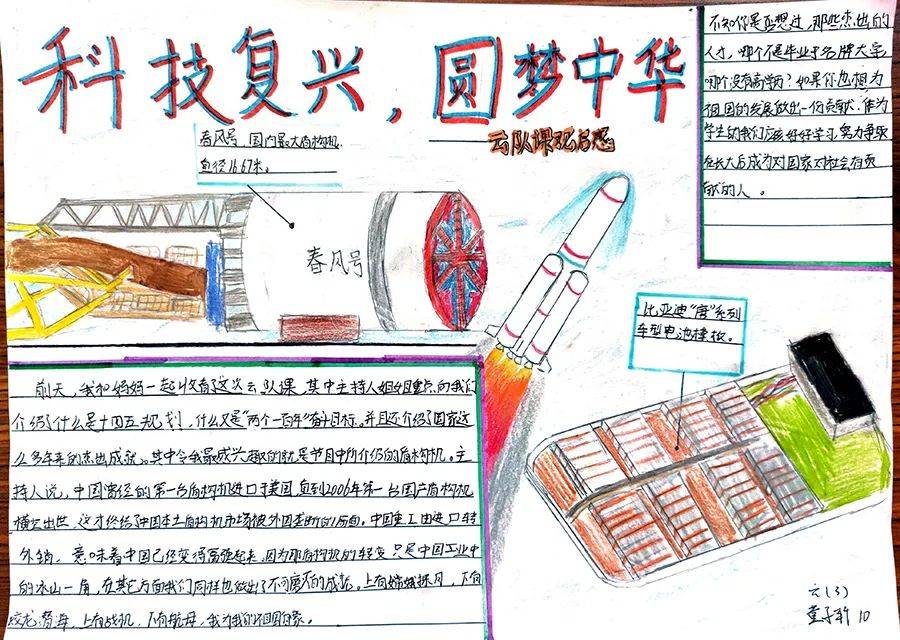 科技复兴，圆梦中华
云队课观后感
春风号，国内最大盾构机
直径16.67米。
春风号
比亚迪“唐”系列
车型电池模板。
不知你是否想过，那些杰出的
人才，哪个不是毕业于名牌大学
哪个没有高学历？如果你也想为
祖国的发展做出一份贡献，作为
学生的我们应该好好学习，努力争取
在长大后成为对国家对社会有贡
献的人。
前天，我和妈妈一起收看了这次云队课，其中主持人姐姐重点向我们
介绍了什么是十四五规划，什么又是“两个一百年”奋斗目标。并且还介绍了国家这
么多年来的杰出成就。其中令我最感兴趣的就是节目中所介绍的盾构机。主
持人说，中国曾经的第一台盾构机进口于美国，直到2006年第一台国产盾构机
横空出世，这才终结了中国本土盾构机市场被外国垄断的局面。中国重工由进口转
外销，意味着中国已经变得富强起来，因为那盾构机的转变只是中国工业中
的冰山一角，在其它方面我们同样也做出了不可磨灭的成就。上有嫦娥探月，下有
蛟龙潜海，上有战机，下有航母，我为我的祖国自豪。
六(3)
童子轩 10